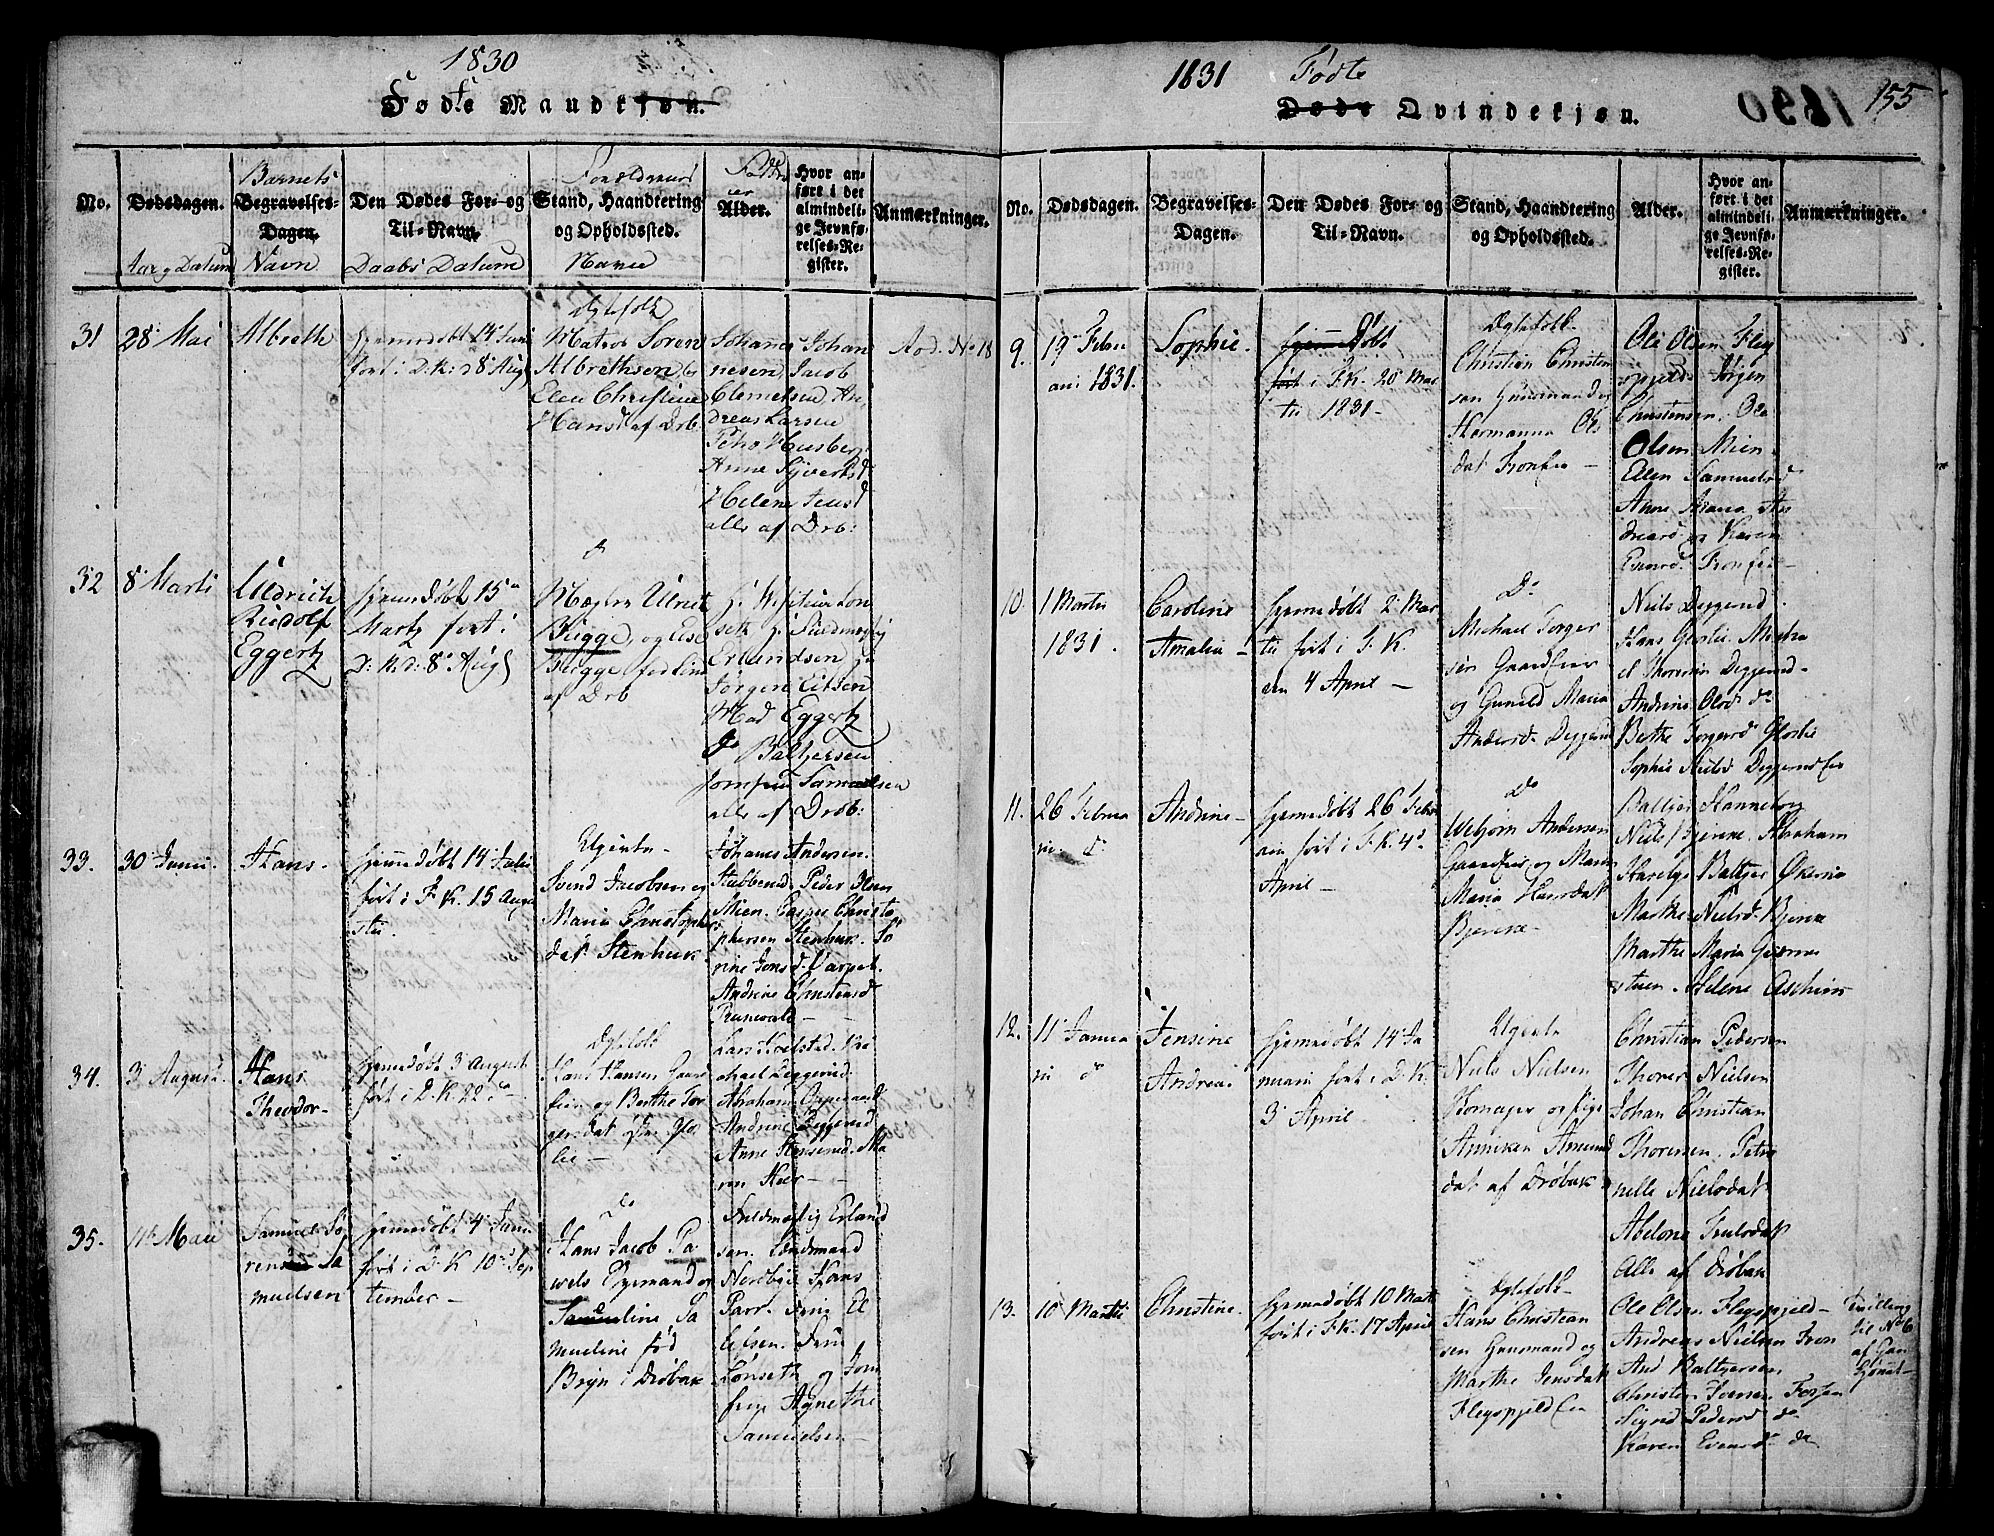 1830
Fødte Mandkjøn.
No.
Dødsdagen.
Aar og Datum
Barnets
Begravelses-
Dagen.
Navn
Den Dødes For- og
Til-Navn.
Daabs Datum
Forældrenes
Stand, Haandtering
og Opholdssted.
Navne
Faddere
Alder.
Hvor an-
ført i det
almindeli-
ge Jevnfø-
relses-Re-
gister.
Anmærkninger.
31
28 Mai
Albreth
hjemmedøbt 14 Juni
ført i D: K: d 8 Aug
Ægtefolk
Matros Søren
Albrethsen og
Elen Christine
Hansd af Drb
Johanes Johan
nesen, Jacob
Clemetsen An,
dreas Larsen
Anne Syvertsd
Helene Jensd
alle af Drb:
Aod. No 18
32
8 Marti
Uldrich
Rudolf
Eggertz
hjemmedøbt 15
Marty ført i
D: K. d: 8 Aug
Mægler Ulrik
Bugge, og Else
Bugge
af Drb
Erlandsen
Jørgen
Mad Eggertz
do Baltzersen
Jomfru Samuelsen
alle af Drøb:
33.
30 Juni
Hans.
hjemmedøbt 14 Juli
ført i F. K. 15 Augu
sti.
Ugivte
Svend Jacobsen og
Maria Christophers
dat Stenhuk
Johanes Andersen
Stubberud, Peder Olsen
Mien. Casper Christo
phersen Stenhuk. Sø
rine Jonsd. Varpet.
Andrine Christensd
34.
3 August.
Hans
Theodor
hjemmedøbt 3 August
ført i D. K. 22
Ægtefolk
Hans Hansen Gaard
eier og Berthe Tor
gersdat østre Glo
slie
Lars Holstad. Mi
chael Deggerud
Abraham Oppegaard
Andrine Deggerud
Anne Stenerud. Ma
ren Haer
35.
11 Maii
Samuel Sø
rensen Sa
muelsen
hjemmedøbt 4 Juni
ført i D. K 10 Sep
tember
Do
Hans Jacob Pa
wels Bygemand og
Samuline Sa
mueline fød
Bryn i Drøbak
Fuldmægtig Erland
sen. Lundsmand
Nordbye Hans
Parr. Frue El
lefsen. Frue
Lønseth og Jom
frue Agnethe
Samuelsen
1831 Fødte
Døde Qvindekjøn.
155
No.
Dødsdagen.
Begravelses-
Dagen.
Den Dødes For- og
Til-Navn.
Stand, Haandtering
og Opholdssted.
Alder.
Hvor an-
ført i det
almindeli-
ge Jevnfø-
relses-Re-
gister.
Anmærkninger.
9.
19 Febru
ari 1831.
Sophie.
hjemmedøbt
ført i F. K. 20 Mar
tii 1831
Ægtefolk
Christian Christen
sen Huusmand og
Hermanna Ols
dat Tronfer
Ole Olsen Fleg
spjeld Jørgen
Christensen. Ole
Olsen Mien.
Ellen Samuelsd
Anne Maria An
dreasd og Karen
Evensd. Tronfer
10.
1 Martii
1831.
Caroline
Amalia
hjemmedøbt 2 Mar
tii ført i F. K.
den 4 April
Do
Michael Torger
sen Gaardeier
og Gunild Maria
Andersd. Deggerud
Niels Deggerud
Hans Gloslie. Micha
el Thoresen Deggerud
Andrine Olsd do
Berthe Torgersd Gloslie
Sophie Nielsd Deggerud Eie
11.
26 Februa
rii do
Andrine
hjemmedøbt 26 Febr
rii ført i F. K. 4d
April
do
Webjørn Andersen
Gaardeier og Maren
Maria Hansdat
Bjerke
Baltzer Hanneborg
Niels Bjerke. Abraham
Marthe Nielsd. Bjerke
Marthe Maria Gjerne
stuen. Helene Aschim
12.
11 Janua
rii do
Jensine
Andrea
hjemmedøbt 14 Ja
nuarii ført i D. K.
3 April
Ugivte
Niels Nielsen
Skomager og Pige
Anniken Amund
dat af Drøbak
Christian Pedersen
Thorer Nielsen
Johan Christian
Thoresen. Petro
nelle Nielsdat
Abelone Truelsdat
Alle af Drøbak
13.
10 Martii
Christine.
hjemmedøbt 10 Marti
ført i F. K. 17 April
Ægtefolk
Hans Christian
sen Huusmand og
Marthe Jensdat
Flegspjeld Eie
Ole Olsen Flegspjeld
Andreas Nielsen Tron
And Baltzersen
Christen Iversen Torsen
Sigrid Pedersd do
Karen Evensd do
Tvilling
til No 6
af Han
kjønet